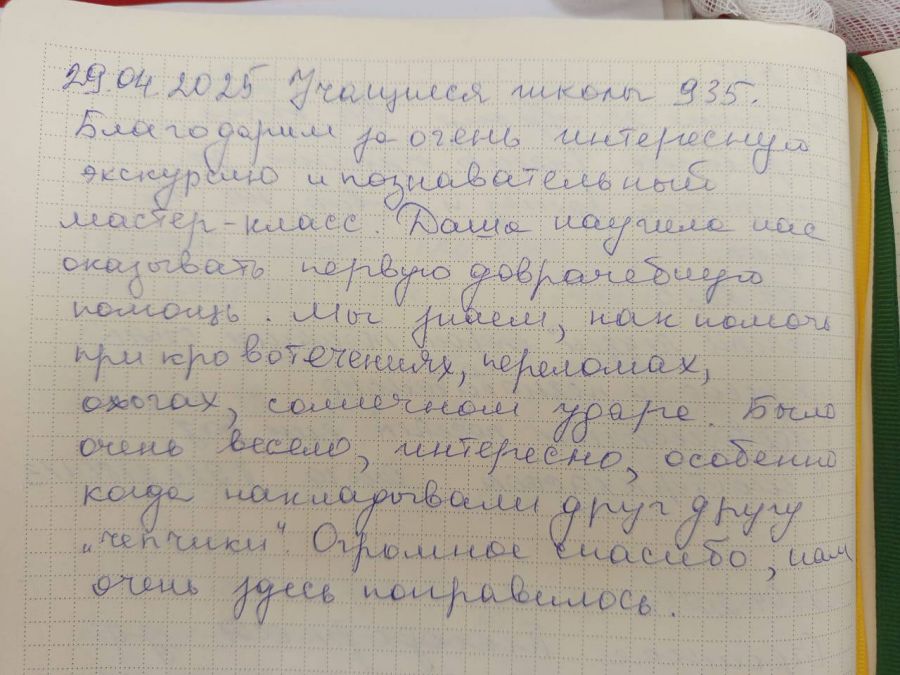 29.04.2025 Учащиеся школы 935.
Благодарим за очень интересную
экскурсию и познавательный
мастер-класс. Даша научила нас
оказывать первую доврачебную
помощь. Мы знаем, как помочь
при кровотечениях, переломах,
ожогах, солнечном ударе. Было
очень весело, интересно, особенно
когда накладывали друг другу
„чепчики". Огромное спасибо, нам
очень здесь понравилось.